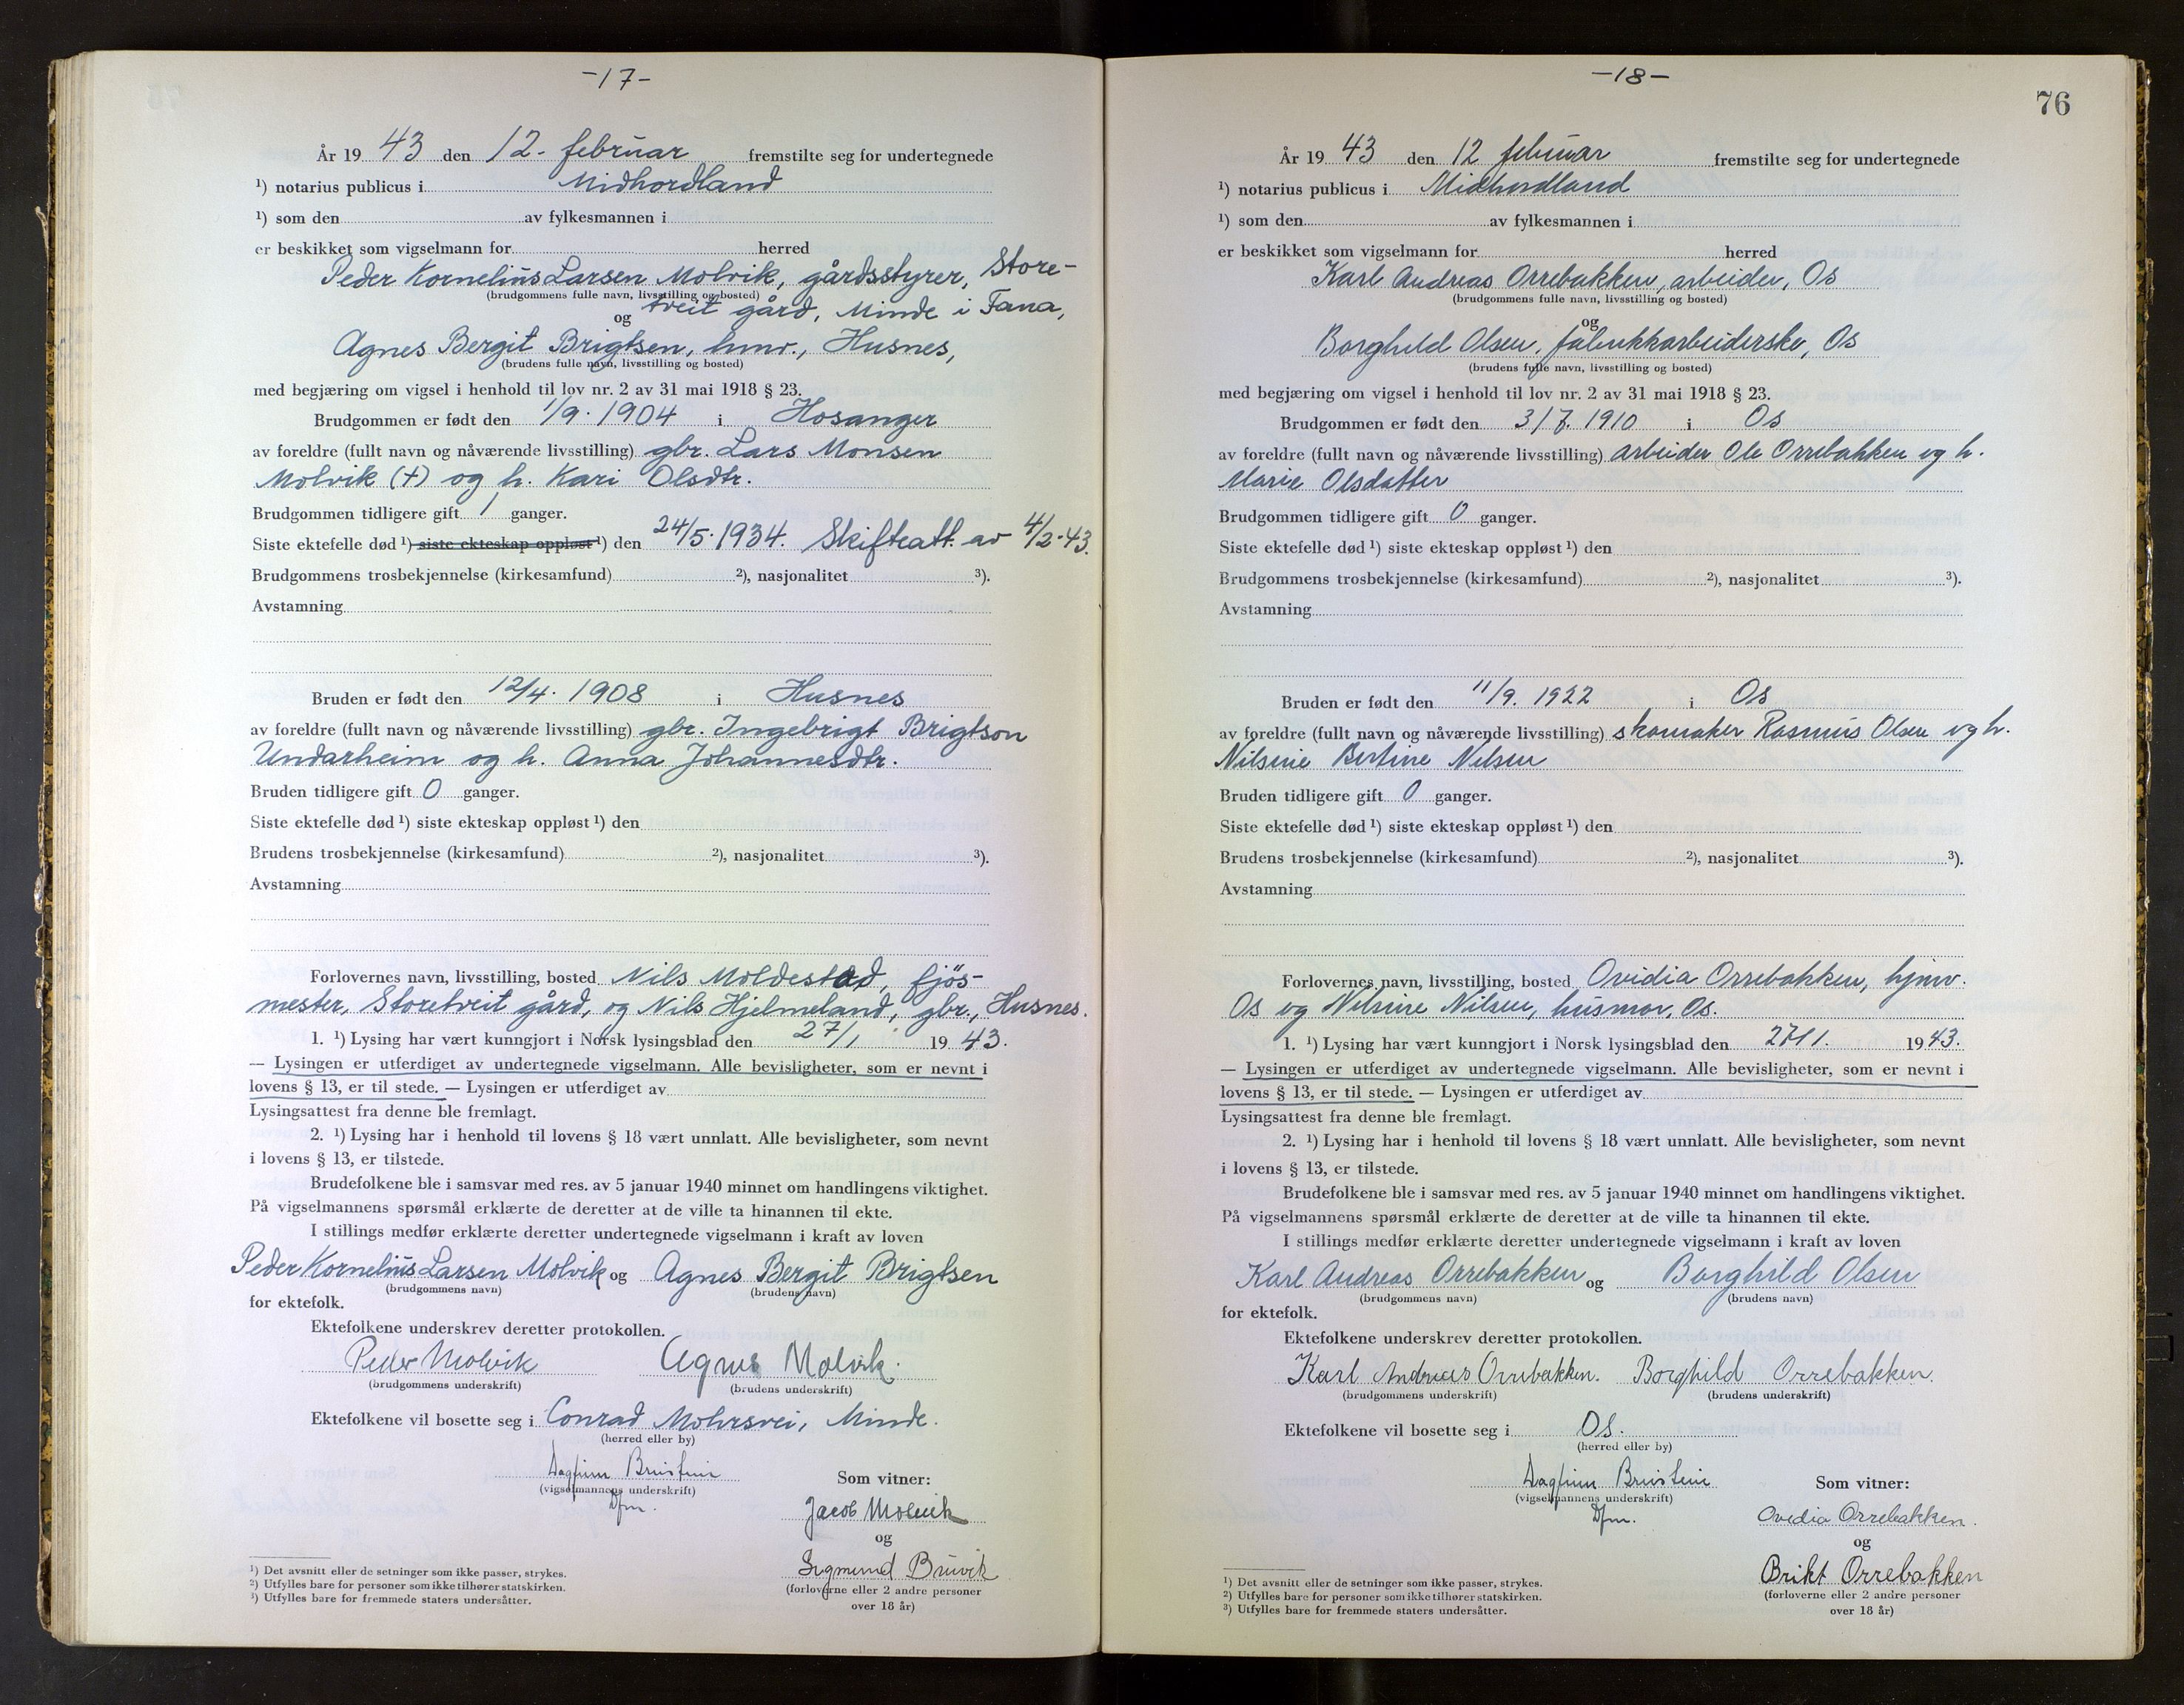 -17-
År 19 43 den 12. februar fremstilte seg for undertegnede
¹) notarius publicus i Midhordland
¹) som den av fylkesmannen i
er beskikket som vigselmann for herred
Peder Kornelius Larsen Molvik, gårdsstyrer, Store-
(brudgommens fulle navn, livsstilling og bosted)
tveit gård, Minde i Fana,
og
Agnes Bergit Brigtsen, hmv., Husnes,
(brudens fulle navn, livsstilling og bosted)
med begjæring om vigsel i henhold til lov nr. 2 av 31 mai 1918 § 23.
Brudgommen er født den 1/9. 1904 i Hosanger
av foreldre (fullt navn og nåværende livsstilling) gbr. Lars Monsen
Molvik (+) og h. Kari Olsdtr.
Brudgommen tidligere gift 1 ganger.
Siste ektefelle død ¹) siste ekteskap oppløst ¹) den 24/5. 1934. Skifteatt. av 4/2-43.
Brudgommens trosbekjennelse (kirkesamfund) ²), nasjonalitet ³).
Avstamning
Bruden er født den 12/4. 1908 i Husnes
av foreldre (fullt navn og nåværende livsstilling) gbr. Ingebrigt Brigtson
Undarheim og h. Anna Johannesdtr.
Bruden tidligere gift 0 ganger.
Siste ektefelle død ¹) siste ekteskap oppløst ¹) den
Brudens trosbekjennelse (kirkesamfund) ²), nasjonalitet ³).
Avstamning
Forlovernes navn, livsstilling, bosted Nils Moldestad, fjös-
mester, Storetveit gård, og Nils Hjelmeland, gbr., Husnes.
1. ¹) Lysing har vært kunngjort i Norsk lysingsblad den 27/1 19 43.
— Lysingen er utferdiget av undertegnede vigselmann. Alle bevisligheter, som er nevnt i
lovens § 13, er til stede. — Lysingen er utferdiget av
Lysingsattest fra denne ble fremlagt.
2. ¹) Lysing har i henhold til lovens § 18 vært unnlatt. Alle bevisligheter, som nevnt
i lovens § 13, er tilstede.
Brudefolkene ble i samsvar med res. av 5 januar 1940 minnet om handlingens viktighet.
På vigselmannens spørsmål erklærte de deretter at de ville ta hinannen til ekte.
I stillings medfør erklærte deretter undertegnede vigselmann i kraft av loven
Peder Kornelius Larsen Molvik og Agnes Bergit Brigtsen
(brudgommens navn) (brudens navn)
for ektefolk.
Ektefolkene underskrev deretter protokollen.
Peder Molvik Agnes Molvik.
(brudgommens underskrift) (brudens underskrift)
Ektefolkene vil bosette seg i Conrad Mohrsvei, Minde.
(herred eller by)
Dagfinn Brustein
(vigselmannens underskrift)
Dfm.
Som vitner:
Jacob Molvik
og
Sigmund Bruvik
(forloverne eller 2 andre personer
over 18 år)
¹) Det avsnitt eller de setninger som ikke passer, strykes.
²) Utfylles bare for personer som ikke tilhører statskirken.
³) Utfylles bare for fremmede staters undersåtter.
-18-
76
År 19 43 den 12 februar fremstilte seg for undertegnede
¹) notarius publicus i Midhordland
¹) som den av fylkesmannen i
er beskikket som vigselmann for herred
Karl Andreas Orrebakken, arbeider, Os
(brudgommens fulle navn, livsstilling og bosted)
og
Borghild Olsen, fabrikkarbeiderske, Os
(brudens fulle navn, livsstilling og bosted)
med begjæring om vigsel i henhold til lov nr. 2 av 31 mai 1918 § 23.
Brudgommen er født den 3/7. 1910 i Os
av foreldre (fullt navn og nåværende livsstilling) arbeider Ole Orrebakken og h.
Marie Olsdatter
Brudgommen tidligere gift 0 ganger.
Siste ektefelle død ¹) siste ekteskap oppløst ¹) den
Brudgommens trosbekjennelse (kirkesamfund) ²), nasjonalitet ³).
Avstamning
Bruden er født den 11/9. 1922 i Os
av foreldre (fullt navn og nåværende livsstilling) skomaker Rasmus Olsen og h.
Nilsine Bertine Nilsen
Bruden tidligere gift 0 ganger.
Siste ektefelle død ¹) siste ekteskap oppløst ¹) den
Brudens trosbekjennelse (kirkesamfund) ²), nasjonalitet ³).
Avstamning
Forlovernes navn, livsstilling, bosted Ovidia Orrebakken, hjmv.
Os og Nilsine Nilsen, husmor, Os.
1. ¹) Lysing har vært kunngjort i Norsk lysingsblad den 27/1. 19 43.
— Lysingen er utferdiget av undertegnede vigselmann. Alle bevisligheter, som er nevnt i
lovens § 13, er til stede. — Lysingen er utferdiget av
Lysingsattest fra denne ble fremlagt.
2. ¹) Lysing har i henhold til lovens § 18 vært unnlatt. Alle bevisligheter, som nevnt
i lovens § 13, er tilstede.
Brudefolkene ble i samsvar med res. av 5 januar 1940 minnet om handlingens viktighet.
På vigselmannens spørsmål erklærte de deretter at de ville ta hinannen til ekte.
I stillings medfør erklærte deretter undertegnede vigselmann i kraft av loven
Karl Andreas Orrebakken og Borghild Olsen
(brudgommens navn) (brudens navn)
for ektefolk.
Ektefolkene underskrev deretter protokollen.
Karl Andreas Orrebakken. Borghild Orrebakken.
(brudgommens underskrift) (brudens underskrift)
Ektefolkene vil bosette seg i Os.
(herred eller by)
Dagfinn Brustein
(vigselmannens underskrift)
Dfm.
Som vitner:
Ovidia Orrebakken.
og
Brikt Orrebakken
(forloverne eller 2 andre personer
over 18 år)
¹) Det avsnitt eller de setninger som ikke passer, strykes.
²) Utfylles bare for personer som ikke tilhører statskirken.
³) Utfylles bare for fremmede staters undersåtter.